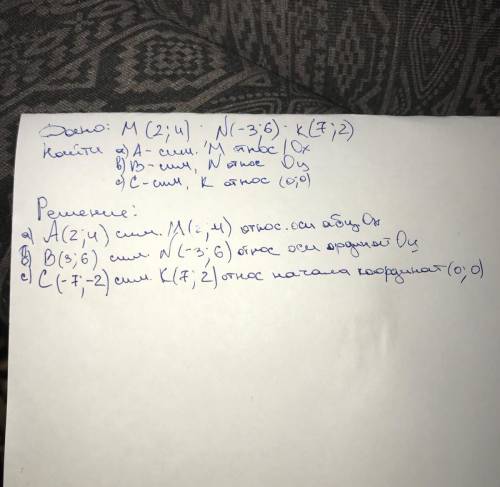 Дано: M (2; 4) · N(-3; 6) · K(7; 2)
Найти а) A - сим. M относ Ox
в) B - сим, N относ Oy
с) C - сим, K относ (0; 0)
Решение:
а) A(2; 4) сим. M(2; 4) относ. оси абц Ox
в) B(3; 6) сим. N(-3; 6) относ оси ординат Oy
с) C(-7; -2) сим. K(7; 2) относ начала координат (0; 0)